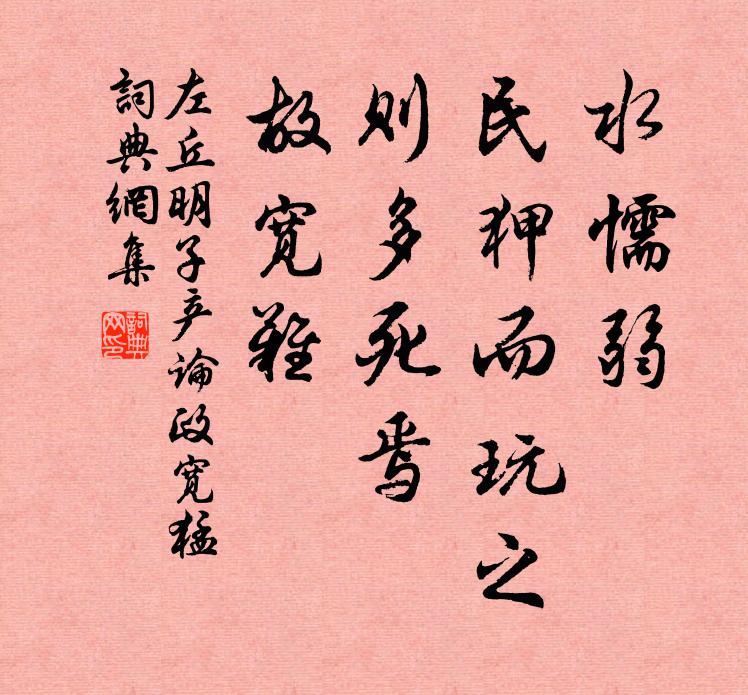 水懦弱
民狎而玩之
则多死焉
故宽难
左丘明子产論政宽猛
詞典網集
詞典网印